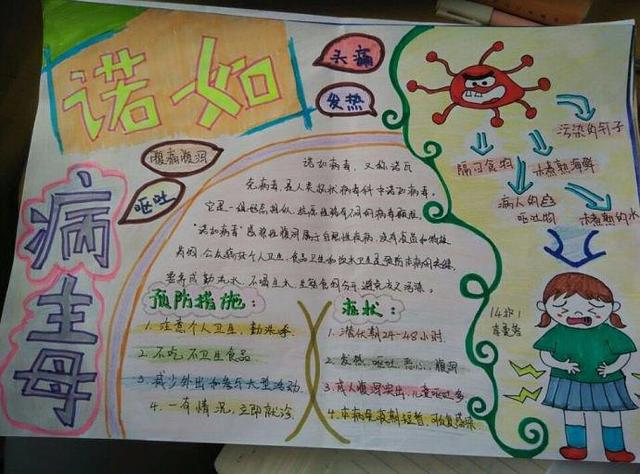 诺如
病主母
头痛
发热
腹痛腹泻
呕吐
诺如病毒，又称诺瓦
克病毒，是人类杯状病毒科中诺如病毒，
它是一组形态相似、抗原性稍有不同的病毒颗粒。
"诺如病毒"感染性腹泻属于自限性疾病，没有疫苗和特效
药物，公众搞好个人卫生、食品卫生和饮水卫生是预防本病的关键，
要养成勤洗手、不喝生水、生熟食物分开，避免交叉污染。
预防措施：
1. 注意个人卫生，勤洗手.
2. 不吃不卫生食品
3. 减少外出和参与大型活动.
4. 一有情况，立即就诊.
症状：
1. 潜伏期24-48小时.
2. 发热、呕吐、恶心、腹泻
3. 成人腹泻突出，儿童呕吐多
4. 本病免疫期短暂，可反复感染.
污染的钉子
隔日食物
未煮熟海鲜
病人的
呕吐物
未煮熟的水
14护1